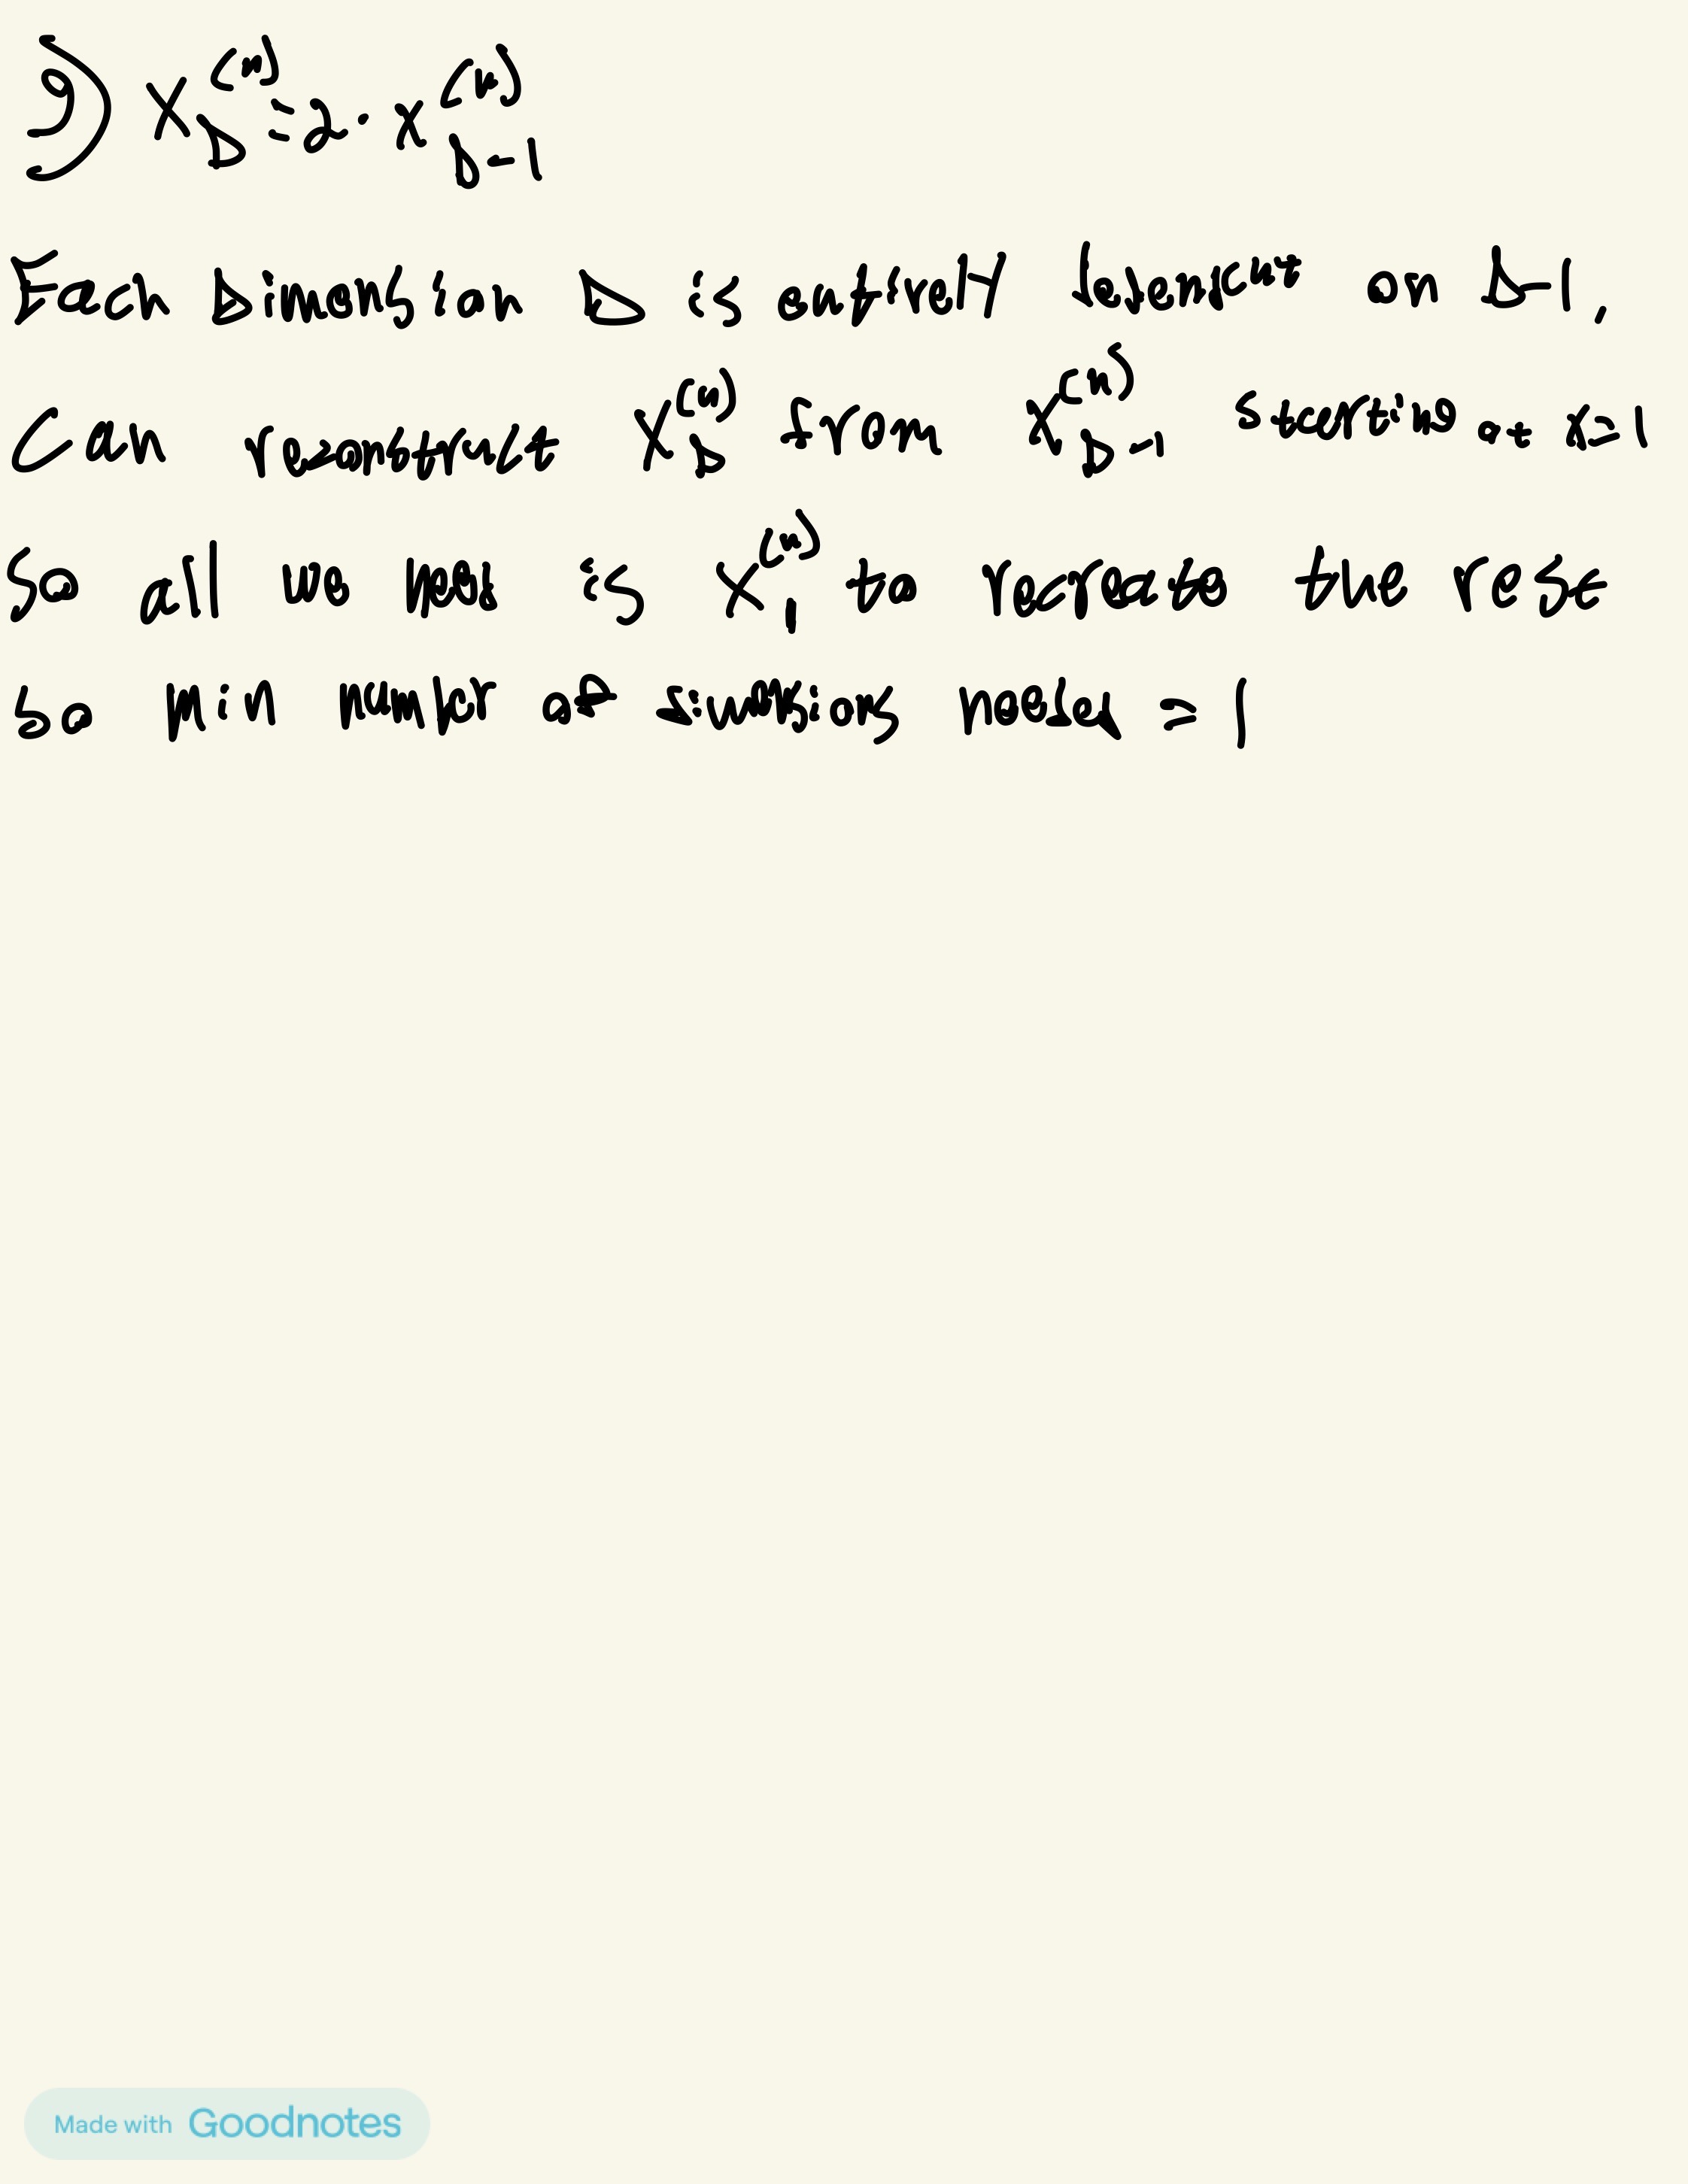 9) X_D^(n) = 2 · x_D-1^(n)
Each Dimension D is entirely dependent on D-1,
Can reconstruct X_D^(n) from X_D-1^(n) starting at x=1
So all we need is X_1^(n) to recreate the rest
so min number of dimensions needed = 1
Made with Goodnotes